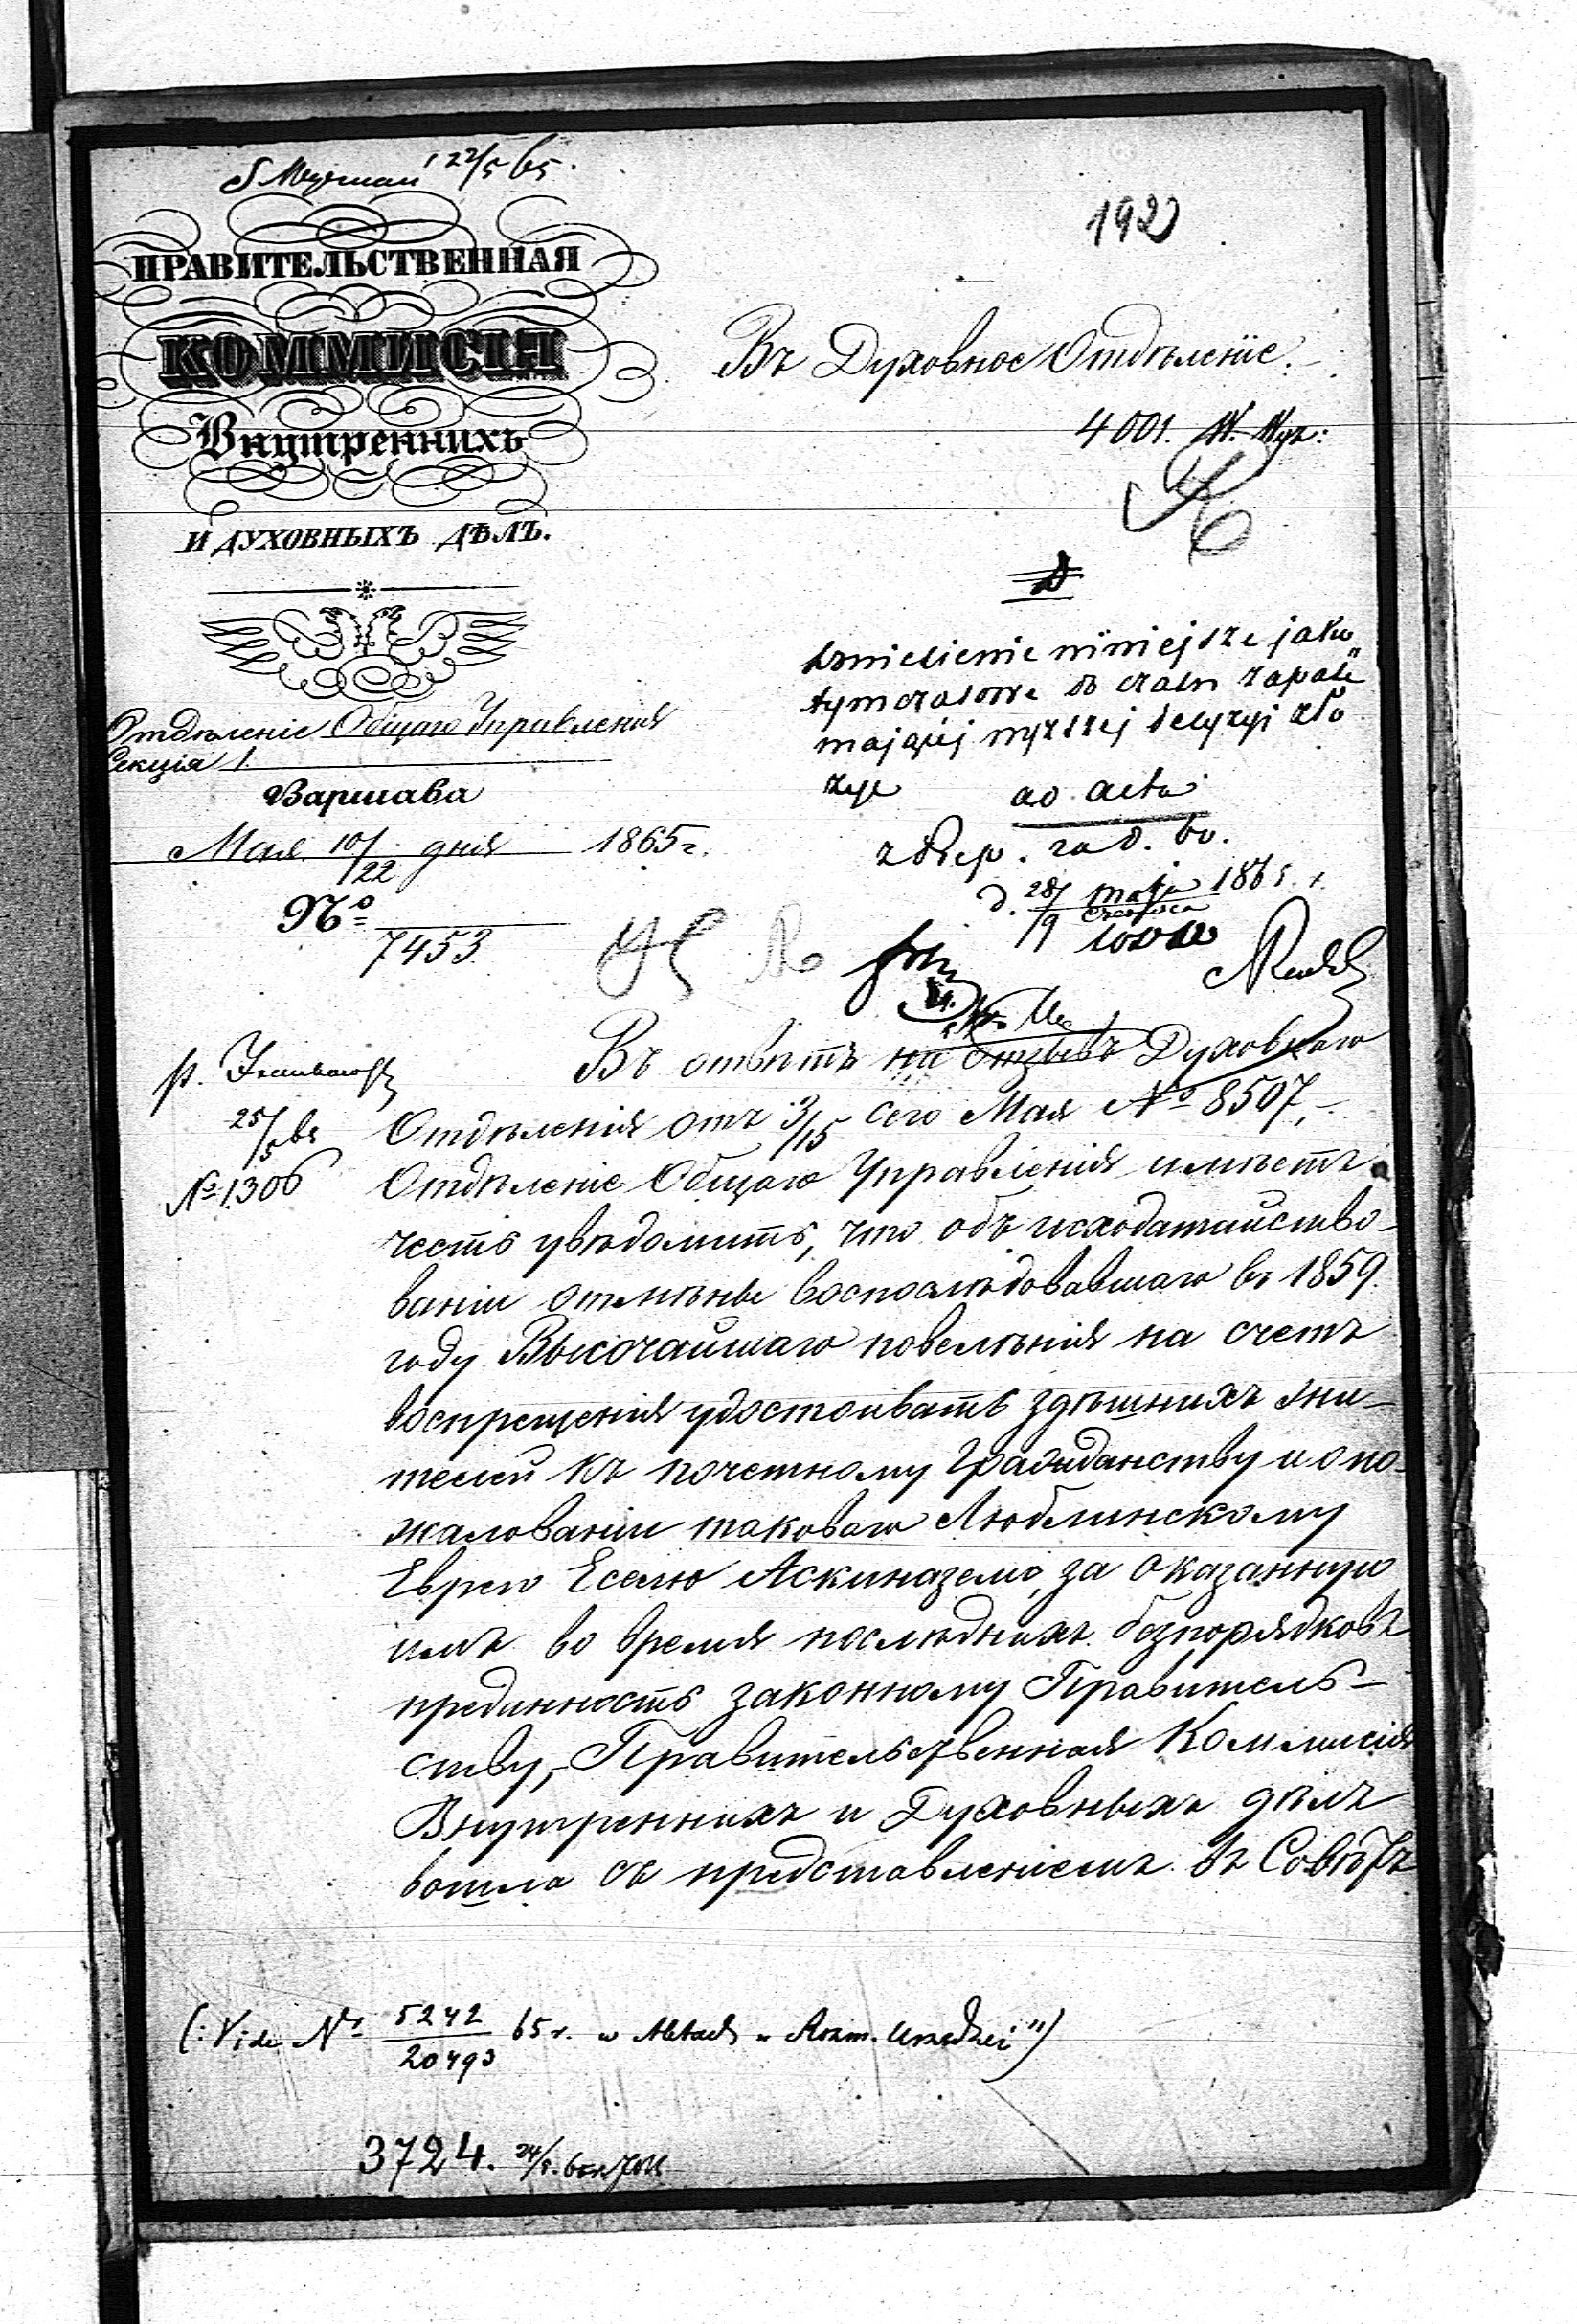 22/5 65.
192
ПРАВИТЕЛЬСТВЕННАЯ
КОММИСІЯ
Внутреннихъ
И ДУХОВНЫХЪ ДѢЛЪ.
Отдѣленіе Общаго Управленія
Секція 1.
Варшава
Мая 10/22 дня 1865 г.
№ 7453
Въ Духовное Отдѣленіе.
4001.
niniejsze jako
tymczasowe do czasu zapaść
mającej wyższej decyzyi zło
żyć
ad acta
d. 28/9 maja czerwca 1865 r.
25/5 65
№ 1306
Въ отвѣтъ на отзывъ Духовнаго
Отдѣленія отъ 3/15 сего Мая № 8507, –
Отдѣленіе Общаго Управленія имѣетъ
честь увѣдомить, что объ исходатайство-
ваніи отмѣны воспослѣдовавшаго въ 1859.
году Высочайшаго повелѣнія на счетъ
воспрещенія удостоивать здѣшнихъ жи-
телей къ почетному гражданству и о по-
жалованіи таковаго Люблинскому
Еврею Еселю Аскиназему, за оказанную
имъ во время послѣднихъ безпорядковъ
преданность законному Правитель-
ству, – Правительственная Коммисія
Внутреннихъ и Духовныхъ дѣлъ
вошла съ представленіемъ въ Совѣтъ
(: Vide № 5242/20493 65 r. w Aktach „
3724. 24/5.